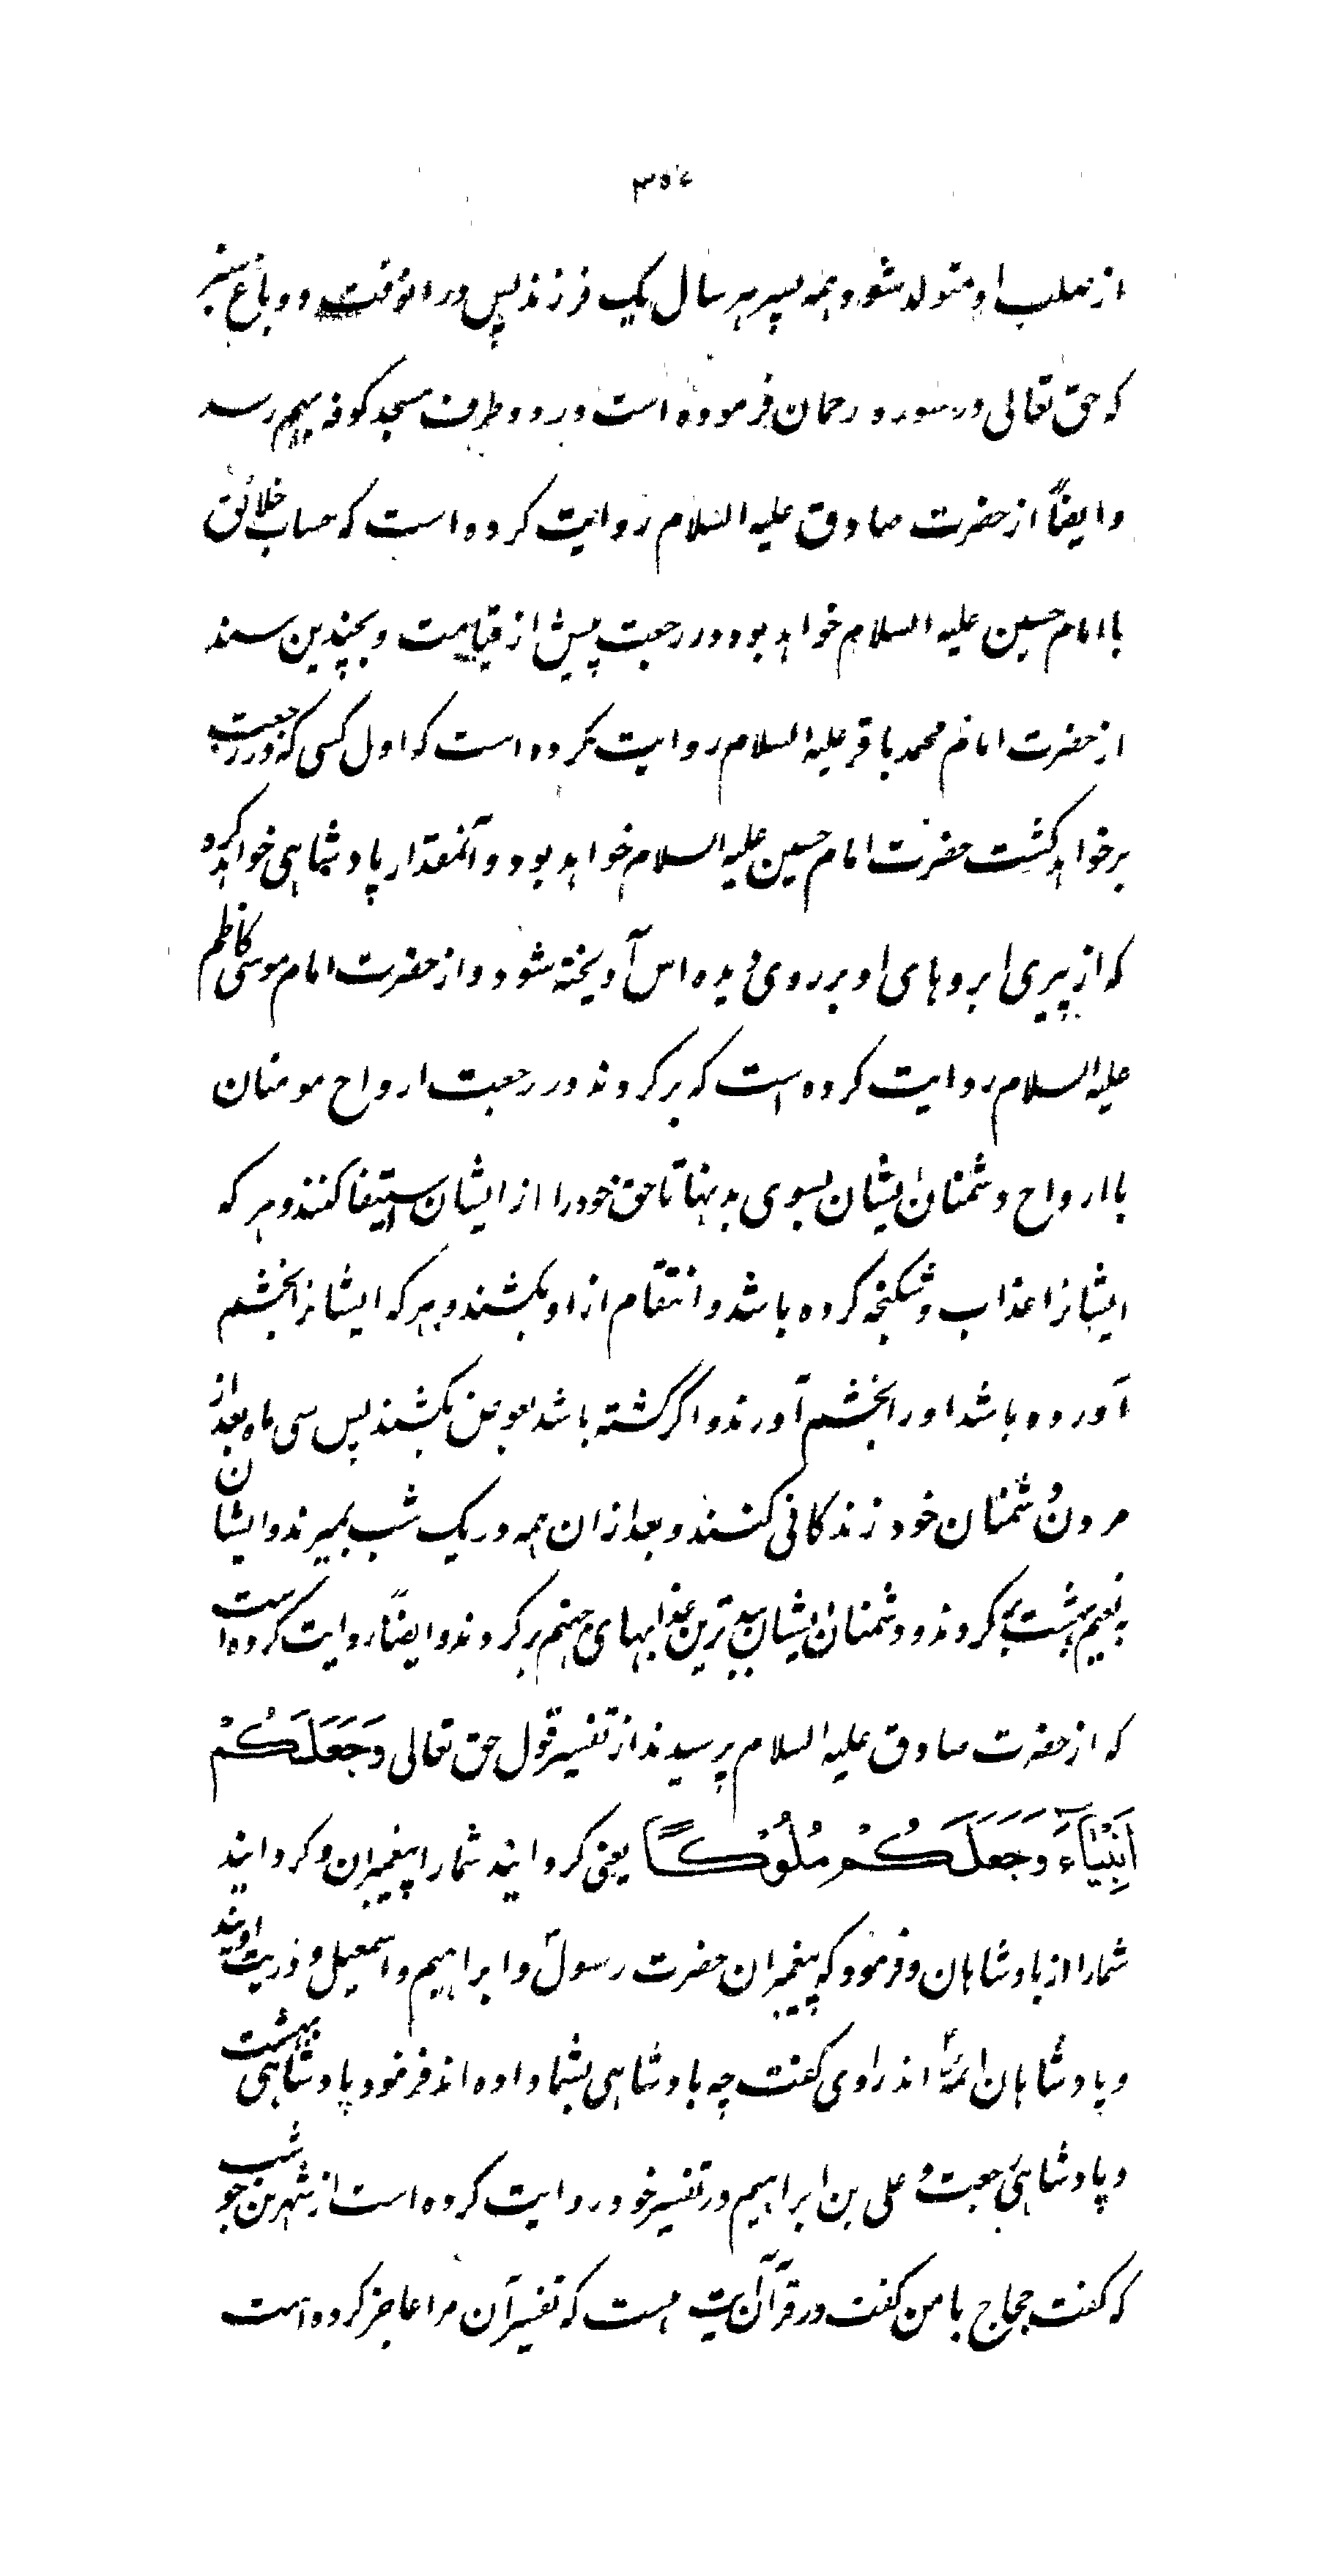 ۳۵۷
از صلب او متولد شود و همه پسر هر سال یک فرزند پس در انوقت دو باغ سبز
که حق تعالی در سوره رحمان فرموده است در دو طرف مسجد کوفه بهم رسد
وایضاً از حضرت صادق علیه السلام روایت کرده است که حساب خلائق
با امام حسین علیه السلام خواهد بود در رجعت پیش از قیامت و بچندین سند
از حضرت امام محمد باقر علیه السلام روایت کرده است که اول کسی که در رجعت
برخواهد کشت حضرت امام حسین علیه السلام خواهد بود و آنمقدار پادشاهی خواهد کرد
که از پیری ابروهای او بر روی دیده اش آویخته شود و از حضرت امام موسی کاظم
علیه السلام روایت کرده است که برکردند در رجعت ارواح مومنان
با ارواح دشمنان ایشان بسوی بدنها تا حق خود را از ایشان استیفا کنند و هر که
ایشانرا عذاب و شکنجه کرده باشد و انتقام از او بکشند و هر که ایشانرا بخشم
آورده باشد او را بخشم آورند و اگر کشته باشد بعوض بکشند پس سی ماه بعد از
مردن دشمنان خود زندکانی کنند و بعد از ان همه در یک شب بمیرند و ایشان
به نعیم بهشت برکردند و دشمنان ایشان ببدترین عذابهای جهنم برکردند و ایضاً روایت کرده است
که از حضرت صادق علیه السلام پرسیدند از تفسیر قول حق تعالی وَجَعَلَكُمْ
اَنْبِيَآءَ وَجَعَلَكُمْ مُلُوْكًا یعنی کردانید شما را پیغمبران و کردانید
شما را از بادشاهان و فرمود که پیغمبران حضرت رسول و ابراهیم و اسمعیل و ذریت اویند
و پادشاهان ائمه اند راوی کفت چه بادشاهی بشما داده اند فرمود پادشاهی بهشت
و پادشاهی رجعت و علی بن ابراهیم در تفسیر خود روایت کرده است از شهر بن حوشب
که کفت حجاج با من کفت در قرآن آیتی هست که تفسیر آن مرا عاجز کرده است